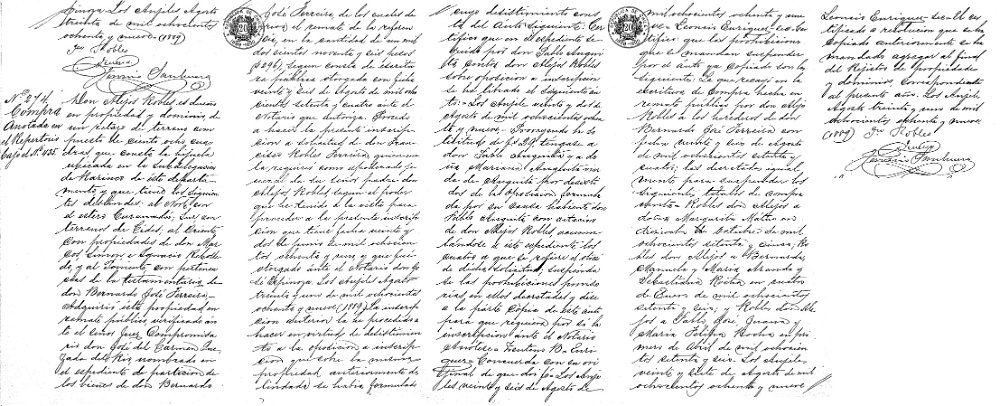 Los Anjeles Agosto
treinta de mil ochocientos
ochenta y nueve (1889)
Robles
Nº 274.
Compra
Anotada en
el Repertorio
bajo el Nº 435.
Don Alejo Robles es dueño
en propiedad y dominio, de
un retazo de terreno com
puesto de ciento ocho cua
dras que consta la hijuela
ubicada en la subdelegacion
de este departa
mento y que tiene los siguien
tes deslindes: al Norte, con
el estero Curamavida; Sur con
terrenos de Cides; al Oriente
con propiedades de don Mar
cos, é Ignacio Rebolle
do, y al Poniente, con pertenen
cias de la testamentaria de
don Bernardo José Ferreira
Adquirió esta propiedad en
remate público, verificado an
te el señor Juez Compromisa
rio don José del Carmen
nombrado en
el espediente de particion de
los bienes de don Bernardo
José Ferreira, de los cuales de
el remate de la referen
cia, en la cantidad de un mil
dos cientos noventa y seis pesos
segun consta de escritu
ra pública otorgada con fecha
veinte y seis de Agosto de mil ocho
cientos setenta y cuatro ante el
Notario que autoriza. Procedo
a hacer la presente inscrip
cion a solicitud de don Fran
cisco Robles Ferreira, quien
la requirió como apoderado
de su señor padre don
Alejo Robles segun el poder
que he tenido a la vista para
proceder a la presente inscrip
cion que tiene fecha veinte y
dos de Junio de mil ochocien
tos ochenta y uno, y que fué
otorgado ante el Notario don Jo
sé Espinoza. Los Anjeles Agosto
treinta y uno de mil ochocientos
ochenta y nueve (1889) La inscrip
cion anterior, la he practicado
en virtud de desistimien
to a la oposicion a inscrip
cion que sobre la misma
propiedad anteriormente des
lindada se habia formulado
cuyo desistimiento con
el del Auto siguiente: Cer
tifico que en el espediente se
guido por don Pablo Anguita
contra don Alejo Robles
sobre oposicion a inscripcion
se ha librado el siguiente au
to: Los Anjeles veinte y dos de
Agosto de mil ochocientos ochen
ta y nueve. Proveyendo la so
licitud de tengase a
don Pablo Anguita y a do
ña Mariana Anguita viu
da de Anguita por desisti
dos de la oposicion formula
da por su causa habiente don
Pablo Anguita con citacion
de don Alejo Robles acumu
landose a este espediente los
cuatro a que se refiere el otrosí
de dicha solicitud, suspenda
se las prohibiciones proveí
das en ellos decretadas y dése
a la parte copia de este auto
para que requiera por su
inscripcion ante el Notario
Anótese. Fructuoso B. Enri
quez. Concuerda con su ori
jinal de que doi fé. Los Anje
les veinte y seis de Agosto de
mil ochocientos ochenta y nue
ve. Leoncio Enriquez. Cer
tifico que las prohibiciones
que se mandan suspender
por el Auto ya copiado son las
siguientes: La que recayó en la
escritura de compra hecha en
remate público por don Alejo
Robles a los herederos de don
Bernardo José Ferreira con
fecha veinte y seis de Agosto
de mil ochocientos setenta y
cuatro; las decretadas igual
mente para suspender los
siguientes títulos de compra
venta: Robles don Alejo a
doña Margarita Matho en
dieziocho de Octubre de mil
ochocientos setenta y cinco; Ro
bles don Alejo a Bernarda,
Manuela y Maria Aranda y
Sebastiana Rocha en cuatro
de Enero de mil ochocientos
setenta y seis; y Robles don Ale
jo a Pablo José, Juana y
Maria Felipa Rocha en pri
mero de Abril de mil ochocien
tos setenta y seis. Los Anjeles
veinte y siete de Agosto de mil
ochocientos ochenta y nueve
Leoncio Enriquez. Es el cer
tificado o resolucion que se ha
copiado anteriormente se ha
mandado agregar al final
del Rejistro de propiedades y
dominios correspondiente
al presente año. Los Anjeles
Agosto treinta y uno de mil
ochocientos ochenta y nueve
(1889) Robles